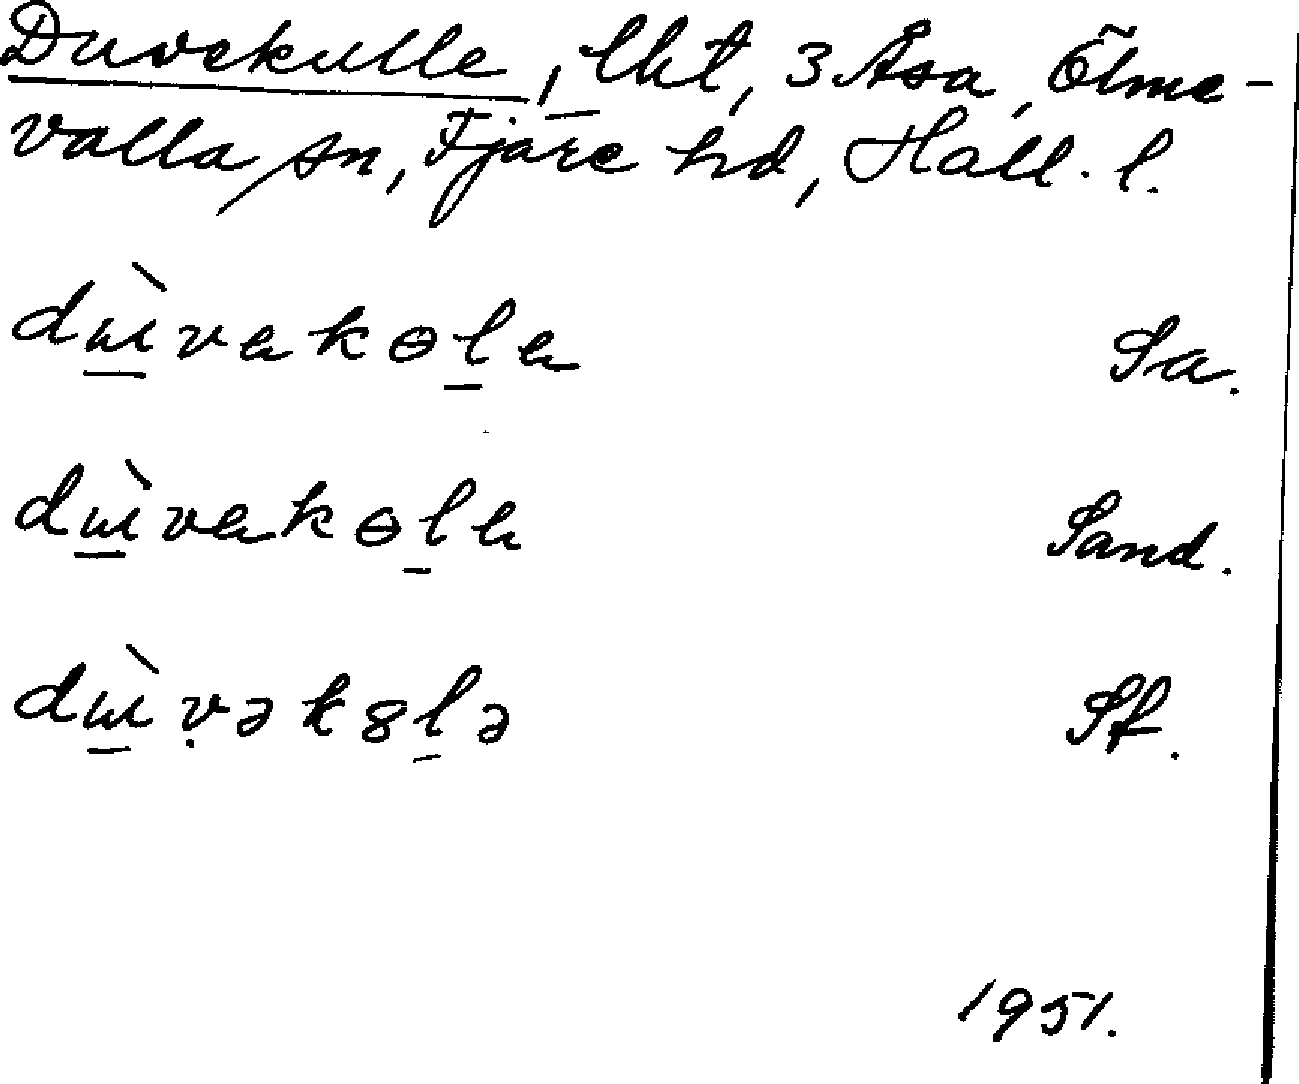 Duvekulle, lht, 3 Åsa, Ölme-
valla sn, Fjäre hd, Hall. l.
dɯ̀vekɵle Sa.
dɯ̀vekɵle Sand.
dɯ̀ṿək8lə Sf.
1951.